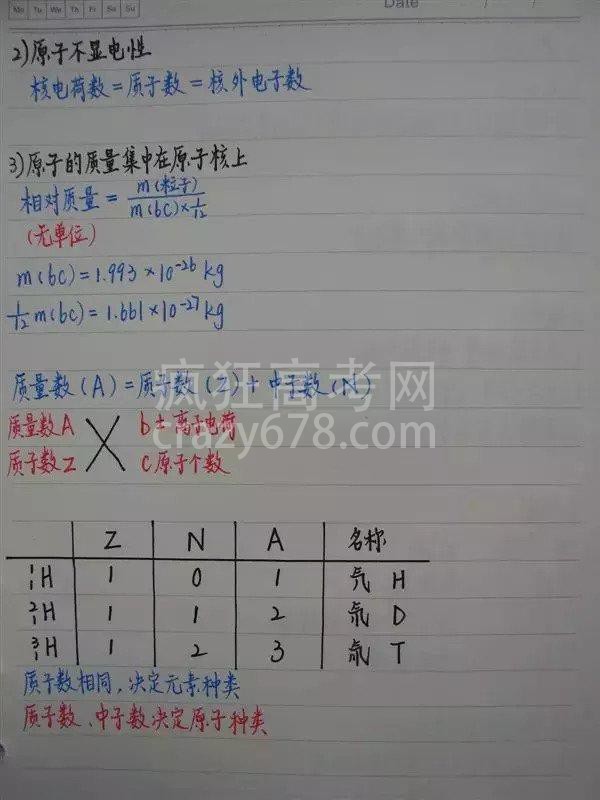 Mo Tu We Th Fr Sa Su
Date / /
2)原子不显电性
核电荷数=质子数=核外电子数
3)原子的质量集中在原子核上
相对质量= m(粒子) / m(6C)×1/12
(无单位)
m(6C)=1.993×10⁻²⁶kg
1/12 m(6C)=1.661×10⁻²⁷kg
疯狂高考网
质量数(A)=质子数(Z)+中子数(N)
质量数A b±离子电荷
crazy678.com
质子数Z C原子个数
Z N A 名称
¹₁H 1 0 1 氕 H
²₁H 1 1 2 氘 D
³₁H 1 2 3 氚 T
质子数相同,决定元素种类
质子数、中子数决定原子种类